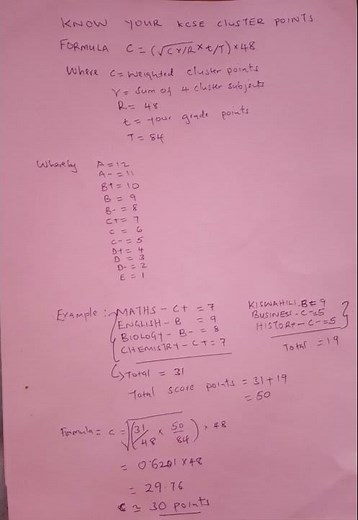 KNOW YOUR KCSE CLUSTER POINTS
FORMULA C = (√(r/R × t/T) × 48
Where C = weighted cluster points
r = sum of 4 cluster subjects
R = 48
t = your grade points
T = 84
Whereby A = 12
A- = 11
B+ = 10
B = 9
B- = 8
C+ = 7
C = 6
C- = 5
D+ = 4
D = 3
D- = 2
E = 1
Example :- MATHS - C+ = 7
ENGLISH - B = 9
BIOLOGY - B- = 8
CHEMISTRY - C+ = 7
Total = 31
KISWAHILI - B = 9
BUSINESS - C- = 5
HISTORY - C- = 5
Total = 19
Total score points = 31 + 19
= 50
Formula = C = √(31/48 × 50/84) × 48
= 0.6201 × 48
= 29.76
C ≃ 30 points